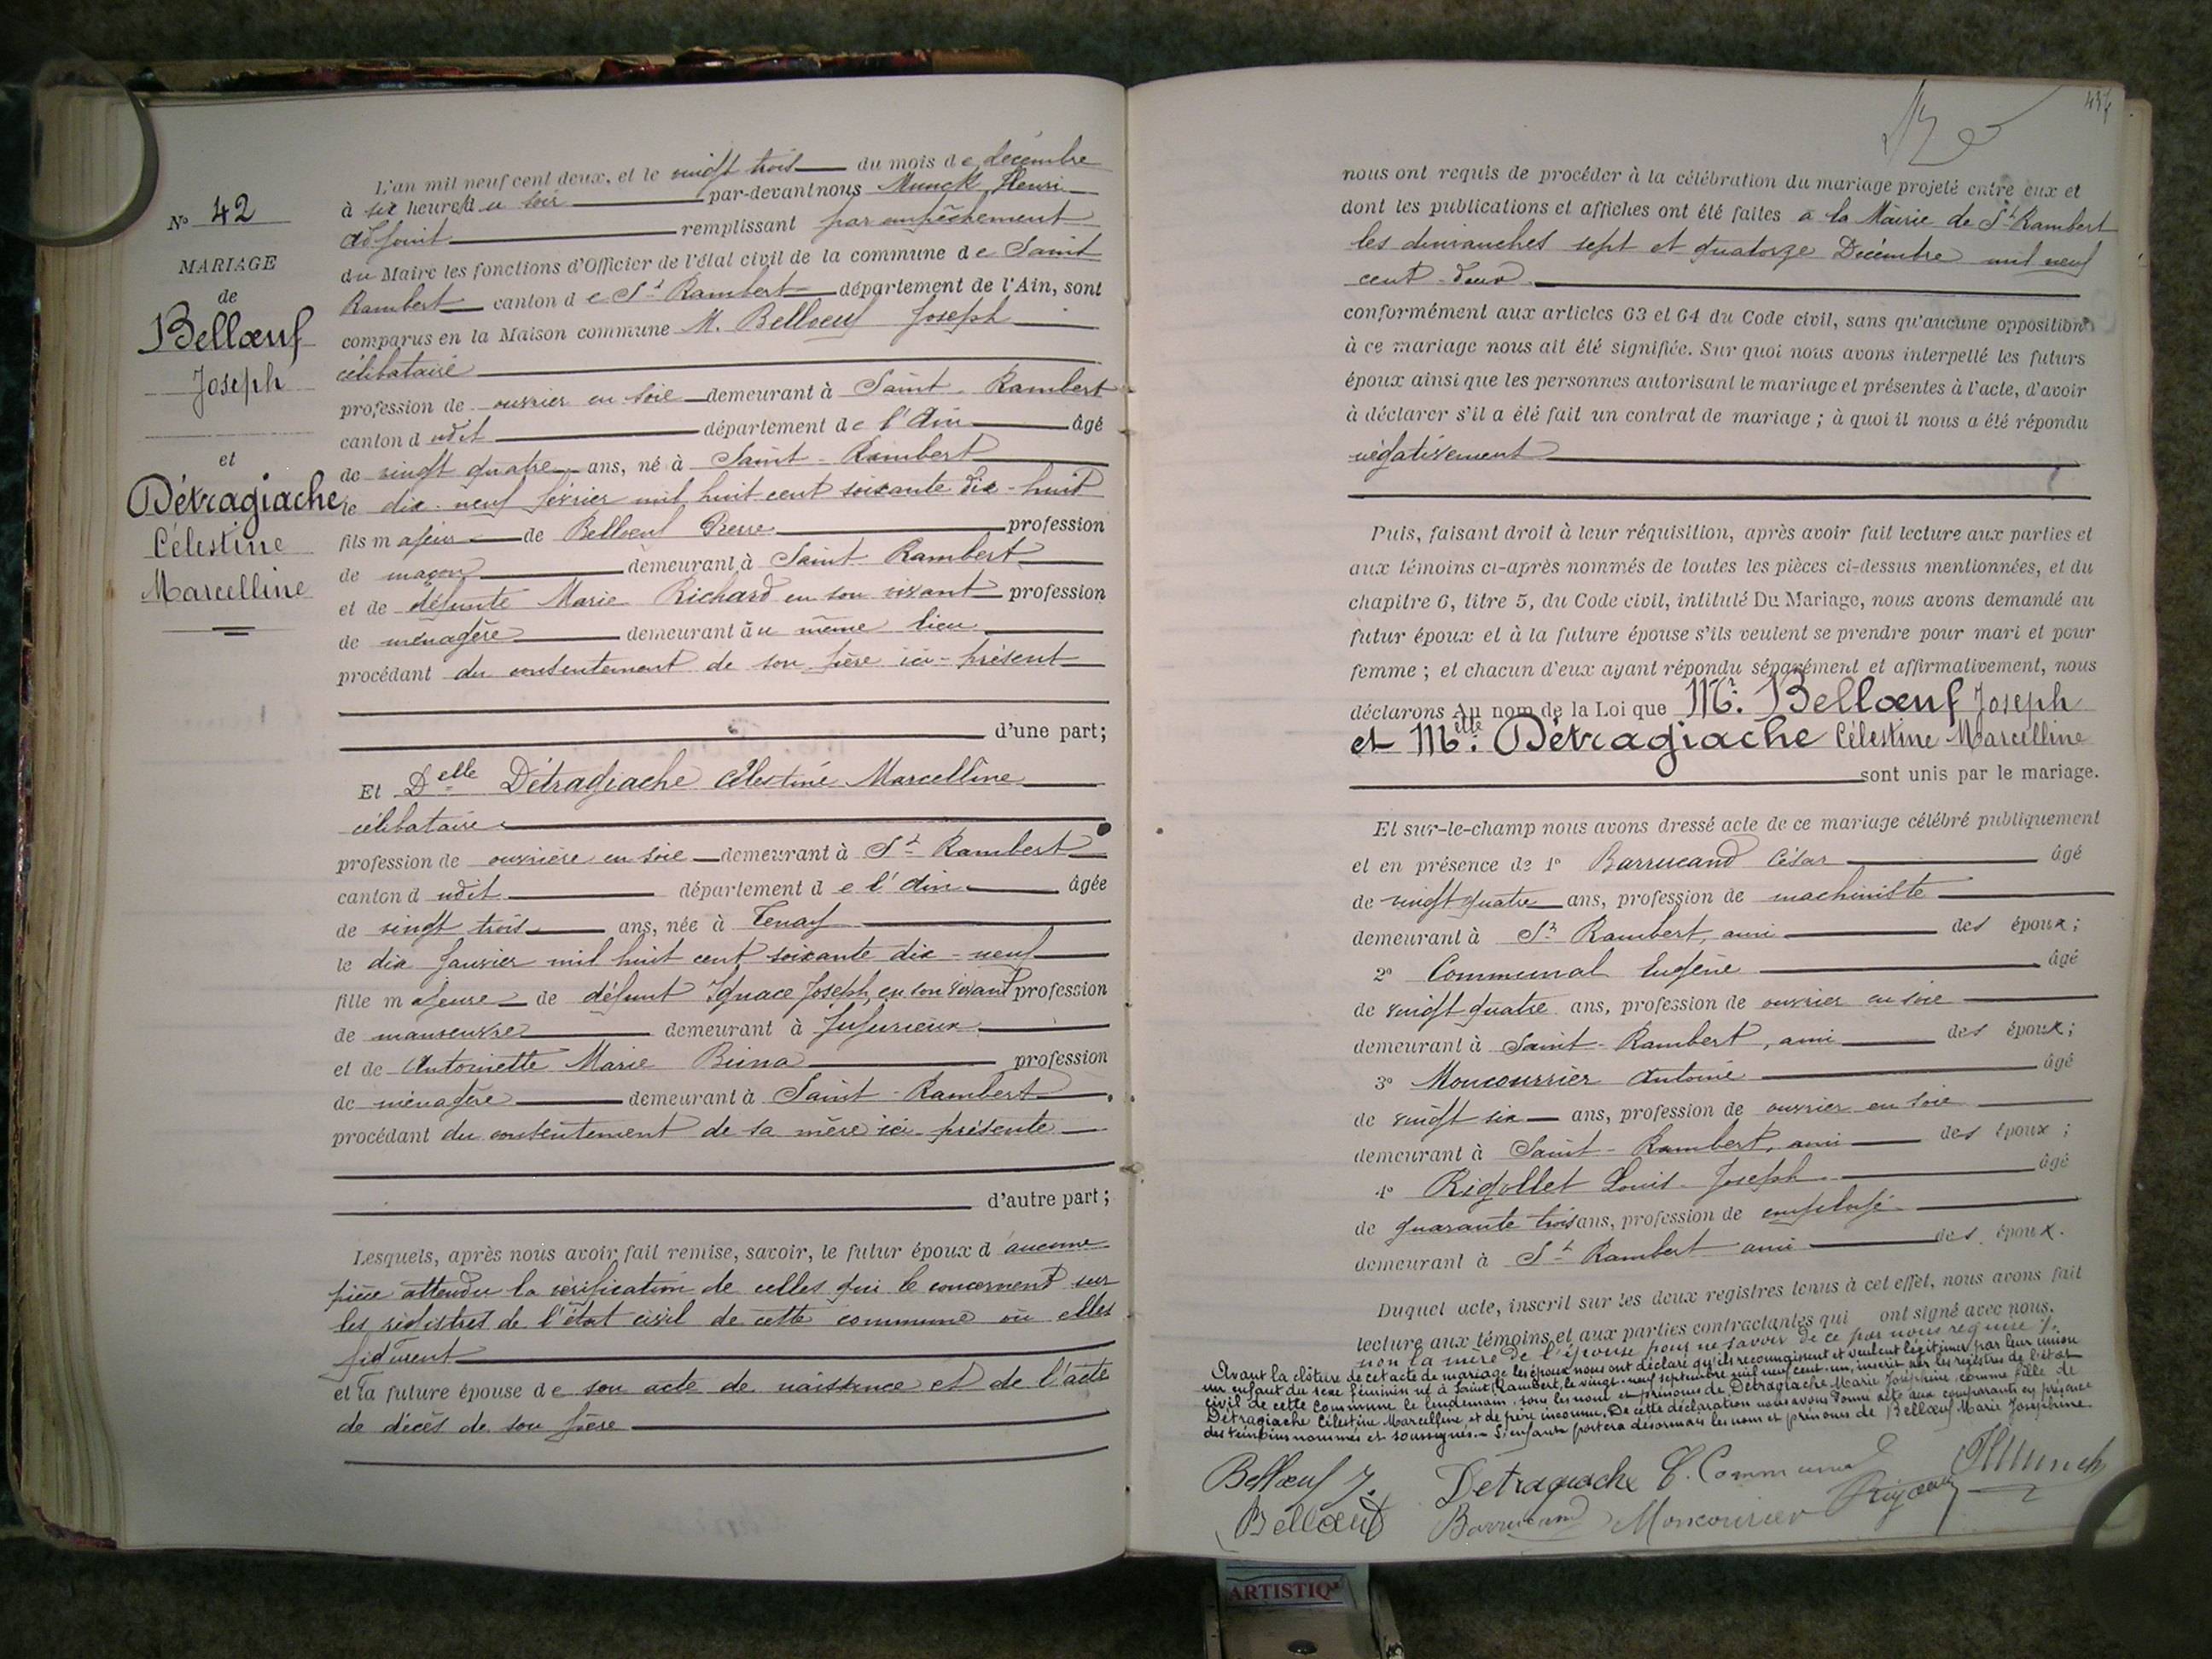 N° 42
MARIAGE
de
Bellœuf
Joseph
et
Détragiache
Célestine
Marcelline
L'an mil neuf cent deux, et le vingt trois du mois de décembre
à six heures du soir par-devant nous Munck Henri
adjoint remplissant par empêchement
du Maire les fonctions d'Officier de l'état civil de la commune de Saint
Rambert canton de St Rambert département de l'Ain, sont
comparus en la Maison commune M. Bellœuf Joseph
célibataire
profession de ouvrier en soie demeurant à Saint-Rambert
canton dudit département de l'Ain âgé
de vingt quatre ans, né à Saint-Rambert
le dix-neuf février mil huit cent soixante dix-huit
fils majeur de Bellœuf Pierre profession
de maçon demeurant à Saint-Rambert
et de défunte Marie Richard en son vivant profession
de ménagère demeurant au même lieu
procédant du consentement de son père ici-présent
d'une part;
Et Delle Détragiache Célestine Marcelline
célibataire
profession de ouvrière en soie demeurant à St Rambert
canton dudit département de l'Ain âgée
de vingt trois ans, née à Tenay
le dix Janvier mil huit cent soixante dix-neuf
fille majeure de défunt Ignace Joseph, en son vivant profession
de manœuvre demeurant à Jujurieux
et de Antoinette Marie profession
de ménagère demeurant à Saint-Rambert
procédant du consentement de sa mère ici-présente
d'autre part;
Lesquels, après nous avoir fait remise, savoir, le futur époux d'aucune
pièce attendu la vérification de celles qui le concernent sur
les registres de l'état civil de cette commune où elles
figurent
et la future épouse de son acte de naissance et de l'acte
de décès de son père
nous ont requis de procéder à la célébration du mariage projeté entre eux et
dont les publications et affiches ont été faites à la Mairie de St Rambert
les dimanches sept et quatorze Décembre mil neuf
cent-deux
conformément aux articles 63 et 64 du Code civil, sans qu'aucune opposition
à ce mariage nous ait été signifiée. Sur quoi nous avons interpellé les futurs
époux ainsi que les personnes autorisant le mariage et présentes à l'acte, d'avoir
à déclarer s'il a été fait un contrat de mariage ; à quoi il nous a été répondu
négativement
Puis, faisant droit à leur réquisition, après avoir fait lecture aux parties et
aux témoins ci-après nommés de toutes les pièces ci-dessus mentionnées, et du
chapitre 6, titre 5, du Code civil, intitulé Du Mariage, nous avons demandé au
futur époux et à la future épouse s'ils veulent se prendre pour mari et pour
femme ; et chacun d'eux ayant répondu séparément et affirmativement, nous
déclarons Au nom de la Loi que Mr. Bellœuf Joseph
et Melle. Détragiache Célestine Marcelline
sont unis par le mariage.
Et sur-le-champ nous avons dressé acte de ce mariage célébré publiquement
et en présence de 1° Barrucand César âgé
de vingt quatre ans, profession de machiniste
demeurant à St Rambert, ami des époux;
2° Communal Eugène âgé
de vingt quatre ans, profession de ouvrier en soie
demeurant à Saint-Rambert, ami des époux;
3° Moncourrier Antoine âgé
de vingt six ans, profession de ouvrier en soie
demeurant à Saint-Rambert, ami des époux ;
4° Rigollet Louis-Joseph âgé
de quarante trois ans, profession de employé
demeurant à St Rambert ami des époux.
Duquel acte, inscrit sur les deux registres tenus à cet effet, nous avons fait
lecture aux témoins et aux parties contractantes qui ont signé avec nous.
non la mère de l'épouse pour ne savoir de ce par nous requise
Avant la clôture de cet acte de mariage les époux nous ont déclaré qu'ils reconnaissent et veulent légitimer par leur union
un enfant du sexe féminin né à Saint Rambert, le vingt-neuf septembre mil neuf cent-un, inscrit sur les registres de l'état
civil de cette commune le lendemain, sous les nom et prénoms de Détragiache Marie Joséphine, comme fille de
Détragiache Célestine Marcelline, et de père inconnu. De cette déclaration nous avons donné acte aux comparants en présence
des témoins nommés et soussignés. - L'enfant portera désormais les nom et prénoms de Bellœuf Marie Joséphine
Bellœuf J. Detragiache E. Communal HMunck
Bellœuf Barrucand Moncourier
ARTISTIQ